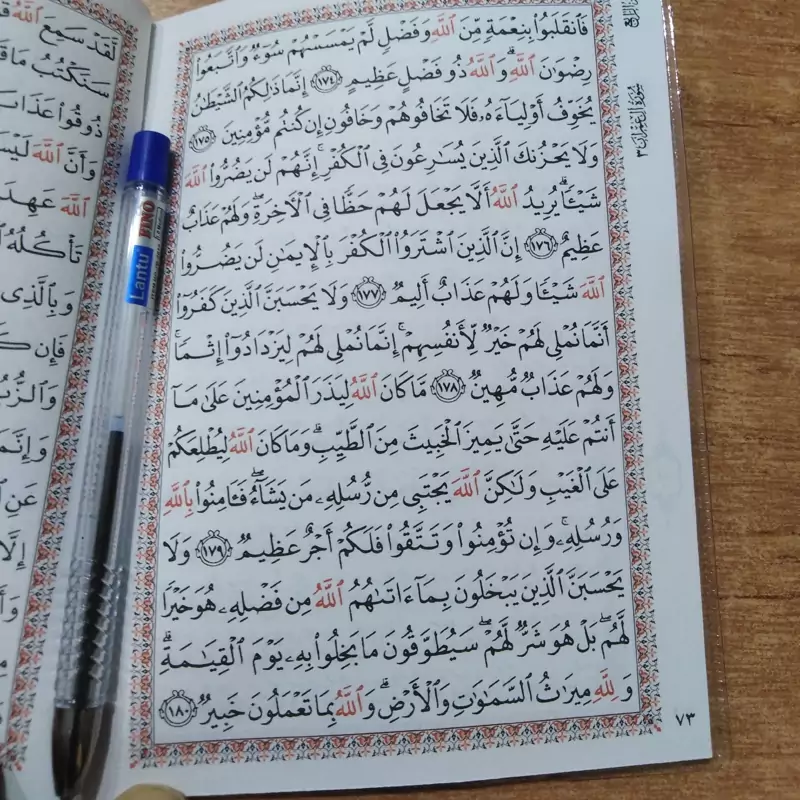 سورة آل عمران ٣
فَٱنقَلَبُوا۟ بِنِعْمَةٍ مِّنَ ٱللَّهِ وَفَضْلٍ لَّمْ يَمْسَسْهُمْ سُوٓءٌ وَٱتَّبَعُوا۟
رِضْوَٰنَ ٱللَّهِ ۗ وَٱللَّهُ ذُو فَضْلٍ عَظِيمٍ ١٧٤ إِنَّمَا ذَٰلِكُمُ ٱلشَّيْطَٰنُ
يُخَوِّفُ أَوْلِيَآءَهُۥ فَلَا تَخَافُوهُمْ وَخَافُونِ إِن كُنتُم مُّؤْمِنِينَ ١٧٥
وَلَا يَحْزُنكَ ٱلَّذِينَ يُسَٰرِعُونَ فِى ٱلْكُفْرِ ۚ إِنَّهُمْ لَن يَضُرُّوا۟ ٱللَّهَ
شَيْـًٔا ۗ يُرِيدُ ٱللَّهُ أَلَّا يَجْعَلَ لَهُمْ حَظًّا فِى ٱلْـَٔاخِرَةِ ۖ وَلَهُمْ عَذَابٌ
عَظِيمٌ ١٧٦ إِنَّ ٱلَّذِينَ ٱشْتَرَوُا۟ ٱلْكُفْرَ بِٱلْإِيمَٰنِ لَن يَضُرُّوا۟
ٱللَّهَ شَيْـًٔا وَلَهُمْ عَذَابٌ أَلِيمٌ ١٧٧ وَلَا يَحْسَبَنَّ ٱلَّذِينَ كَفَرُوٓا۟
أَنَّمَا نُمْلِى لَهُمْ خَيْرٌ لِّأَنفُسِهِمْ ۚ إِنَّمَا نُمْلِى لَهُمْ لِيَزْدَادُوٓا۟ إِثْمًا ۚ
وَلَهُمْ عَذَابٌ مُّهِينٌ ١٧٨ مَّا كَانَ ٱللَّهُ لِيَذَرَ ٱلْمُؤْمِنِينَ عَلَىٰ مَآ
أَنتُمْ عَلَيْهِ حَتَّىٰ يَمِيزَ ٱلْخَبِيثَ مِنَ ٱلطَّيِّبِ ۗ وَمَا كَانَ ٱللَّهُ لِيُطْلِعَكُمْ
عَلَى ٱلْغَيْبِ وَلَٰكِنَّ ٱللَّهَ يَجْتَبِى مِن رُّسُلِهِۦ مَن يَشَآءُ ۖ فَـَٔامِنُوا۟ بِٱللَّهِ
وَرُسُلِهِۦ ۚ وَإِن تُؤْمِنُوا۟ وَتَتَّقُوا۟ فَلَكُمْ أَجْرٌ عَظِيمٌ ١٧٩ وَلَا
يَحْسَبَنَّ ٱلَّذِينَ يَبْخَلُونَ بِمَآ ءَاتَىٰهُمُ ٱللَّهُ مِن فَضْلِهِۦ هُوَ خَيْرًا
لَّهُم ۖ بَلْ هُوَ شَرٌّ لَّهُمْ ۖ سَيُطَوَّقُونَ مَا بَخِلُوا۟ بِهِۦ يَوْمَ ٱلْقِيَٰمَةِ ۗ
وَلِلَّهِ مِيرَٰثُ ٱلسَّمَٰوَٰتِ وَٱلْأَرْضِ ۗ وَٱللَّهُ بِمَا تَعْمَلُونَ خَبِيرٌ ١٨٠
٧٣
لَّقَدْ سَمِعَ ٱللَّهُ
سَنَكْتُبُ مَا
ذُوقُوا۟ عَذَابَ
وَأَنَّ ٱللَّهَ لَيْسَ
ٱللَّهَ عَهِدَ
تَأْكُلُهُ
وَبِٱلَّذِى
فَإِن
وَٱلزُّبُرِ
وَإِنَّمَا
عَنِ
إِلَّا
Lantu BINO